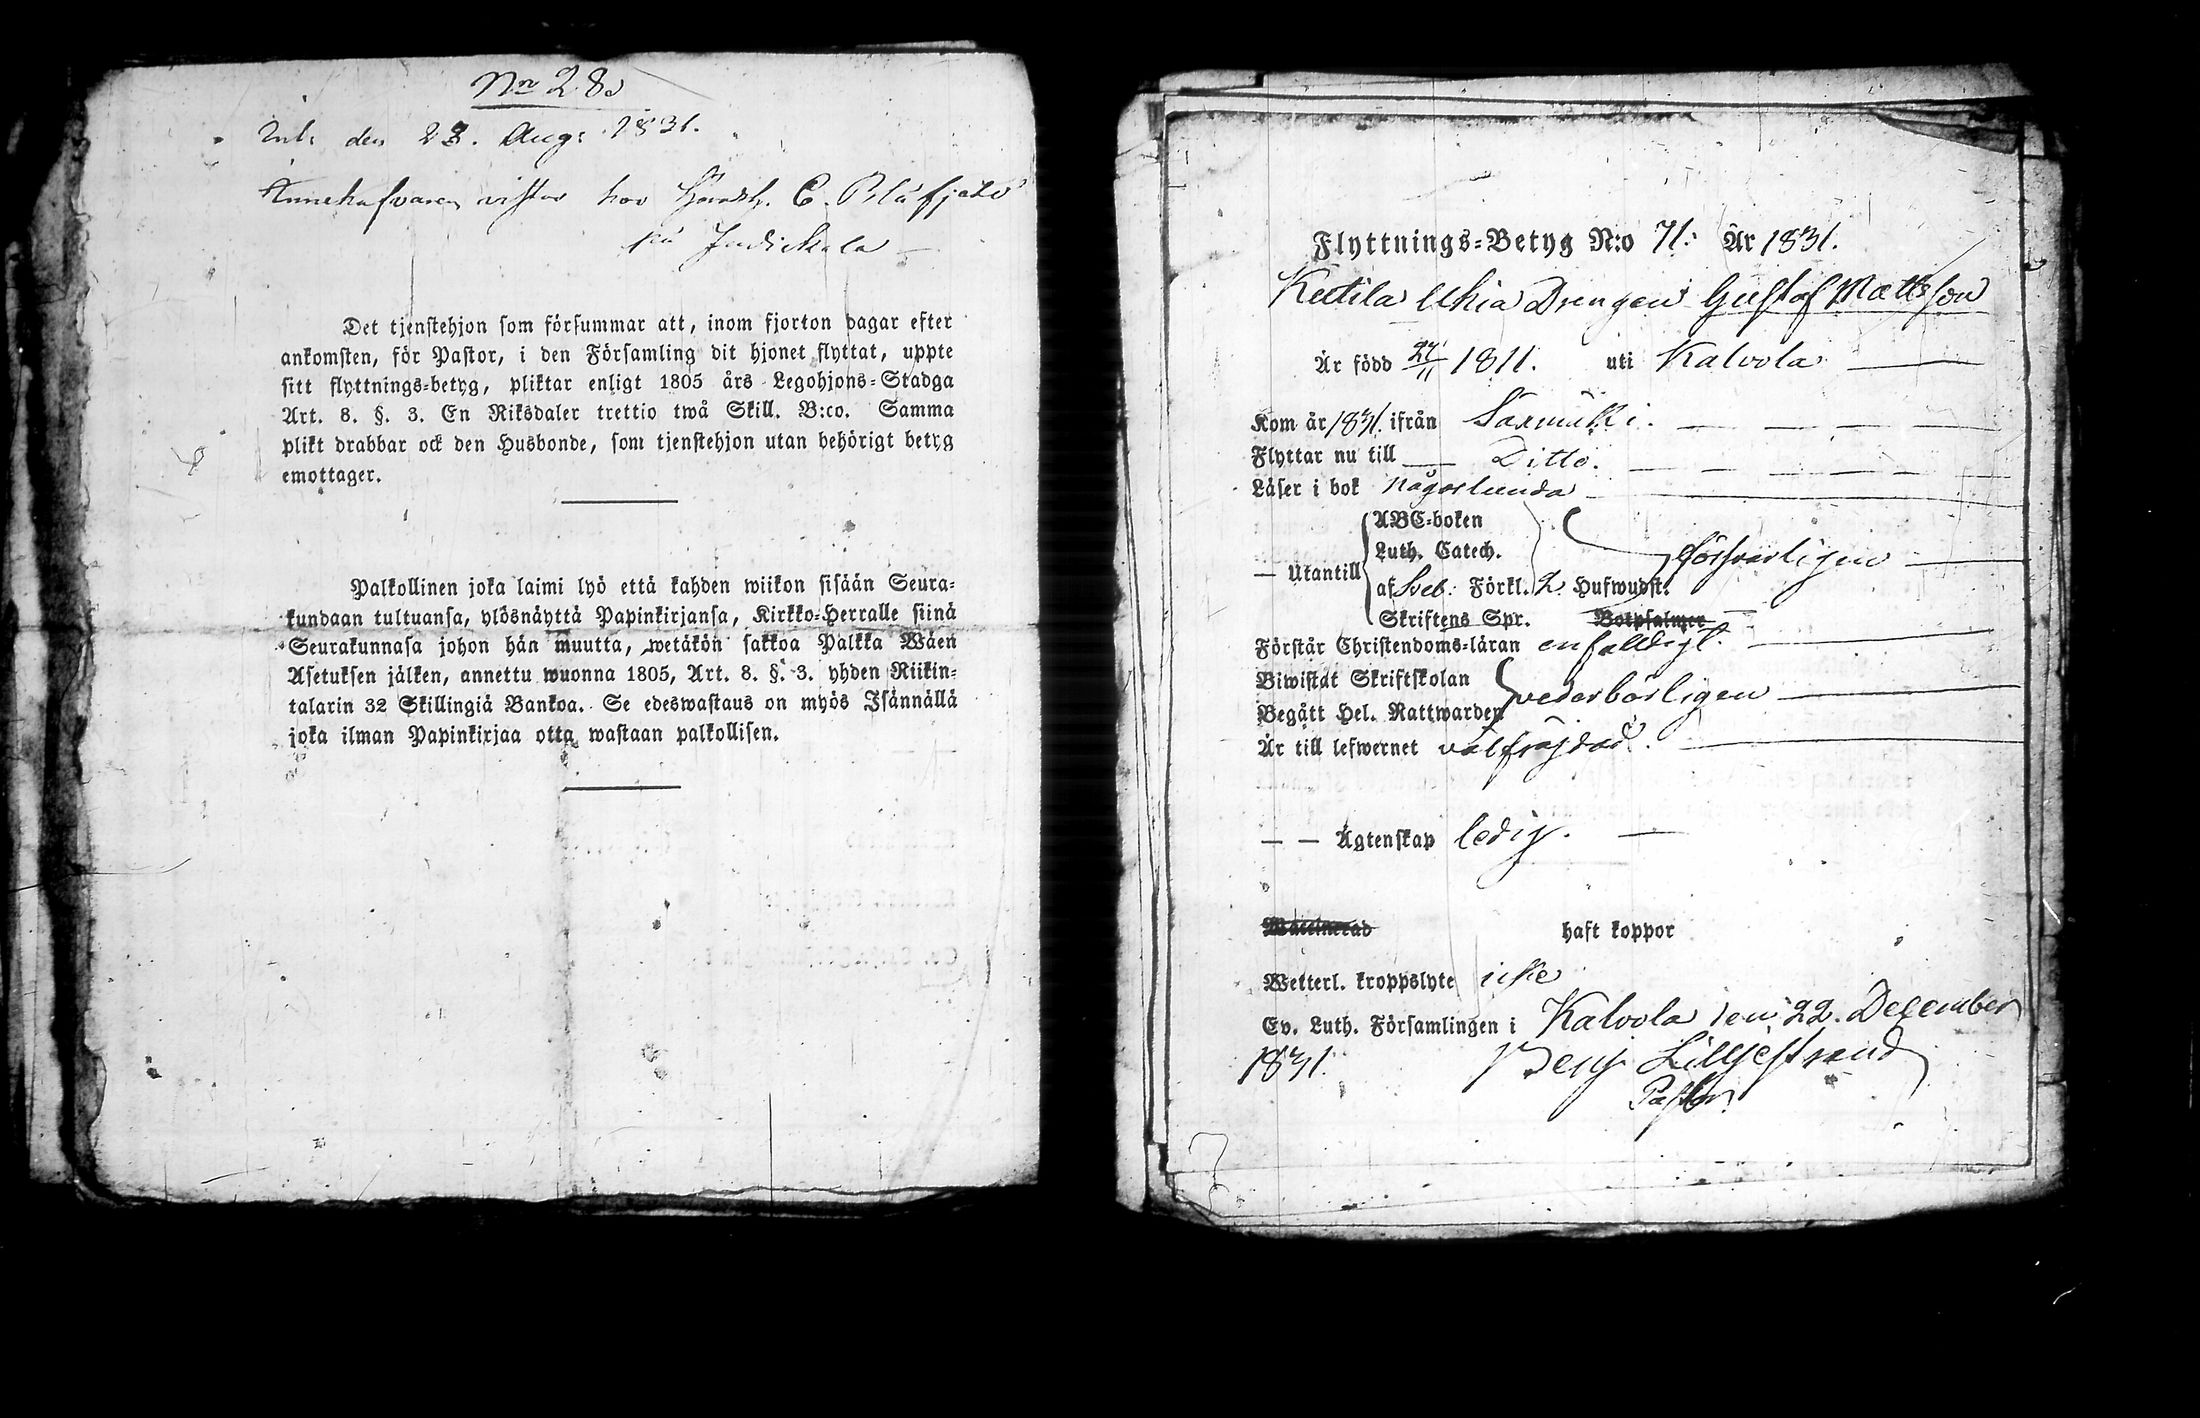 Nro 28
Inl: den 23. Aug: 1831.
Innehafvaren vistas hos C. Blåfjeld
på
Det tjenstehjon som försummar att, inom fjorton dagar efter
ankomsten, för Pastor, i den Församling dit hjonet flyttat, uppte
sitt flyttnings-betyg, pliktar enligt 1805 års Legohjons-Stadga
Art. 8. §. 3. En Riksdaler trettio twå Skill. B:co. Samma
plikt drabbar ock den Husbonde, som tjenstehjon utan behörigt betyg
emottager.
Palkollinen joka laimi lyö että kahden wiikon sisään Seura-
kundaan tultuansa, ylösnäyttä Papinkirjansa, Kirkko-Herralle siinä
Seurakunnasa johon hän muutta, wetäkön sakkoa Palkka Wäen
Asetuksen jälken, annettu wuonna 1805, Art. 8. §. 3. yhden Riikin-
talarin 32 Skillingiä Bankoa. Se edeswastaus on myös Isännällä
joka ilman Papinkirjaa otta wastaan palkollisen.
Flyttnings-Betyg N:o 71. År 1831.
Keutila Ukia Drengen Gustaf Mattsson
Är född 24/11 1811. uti Kalvola
Kom år 1831. ifrån Saxmäki.
Flyttar nu till Ditto.
Läser i bok någorlunda
Utantill
ABC-boken
Luth. Catech.
af Sveb. Förkl. 2 Hufwudst. försvarligen
Skriftens Spr. Botpsalmer
Förstår Christendoms-läran enfalldigt.
Biwistat Skriftskolan
Begått Hel. Nattwarden vederbörligen
Är till lefwernet välfräjdad.
Ägtenskap ledig.
Waccinerad haft koppor
Wetterl. kroppslyte icke
Ev. Luth. Församlingen i Kalvola den 22. December
1831. Benj. Lilljestrand
Pastor.